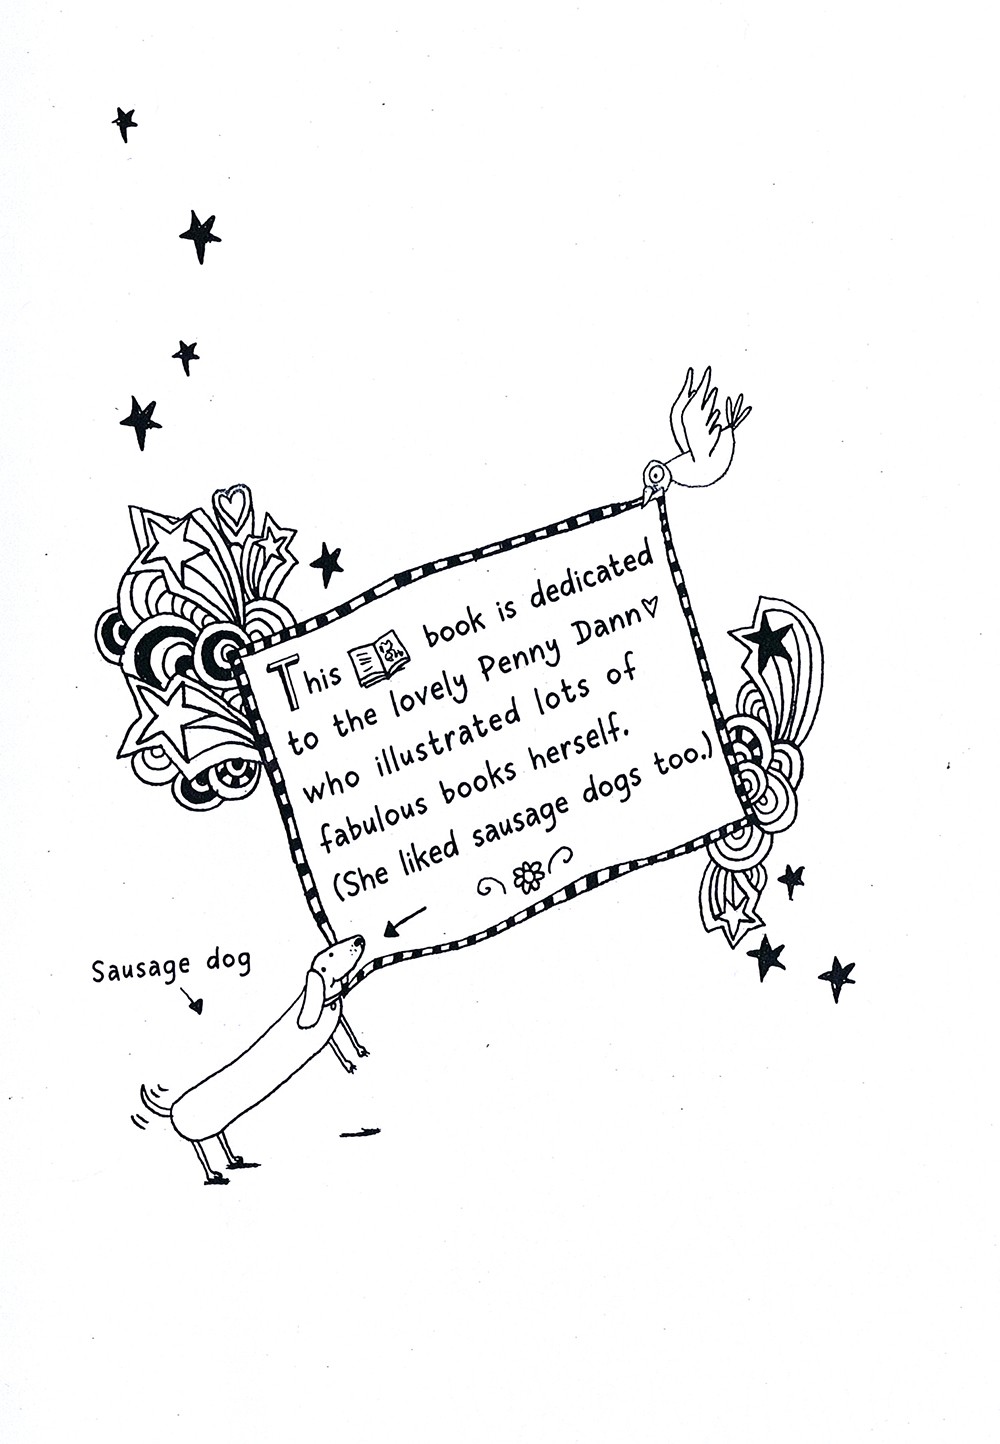 This book is dedicated
to the lovely Penny Dann♡
who illustrated lots of
fabulous books herself.
(She liked sausage dogs too.)
Sausage dog